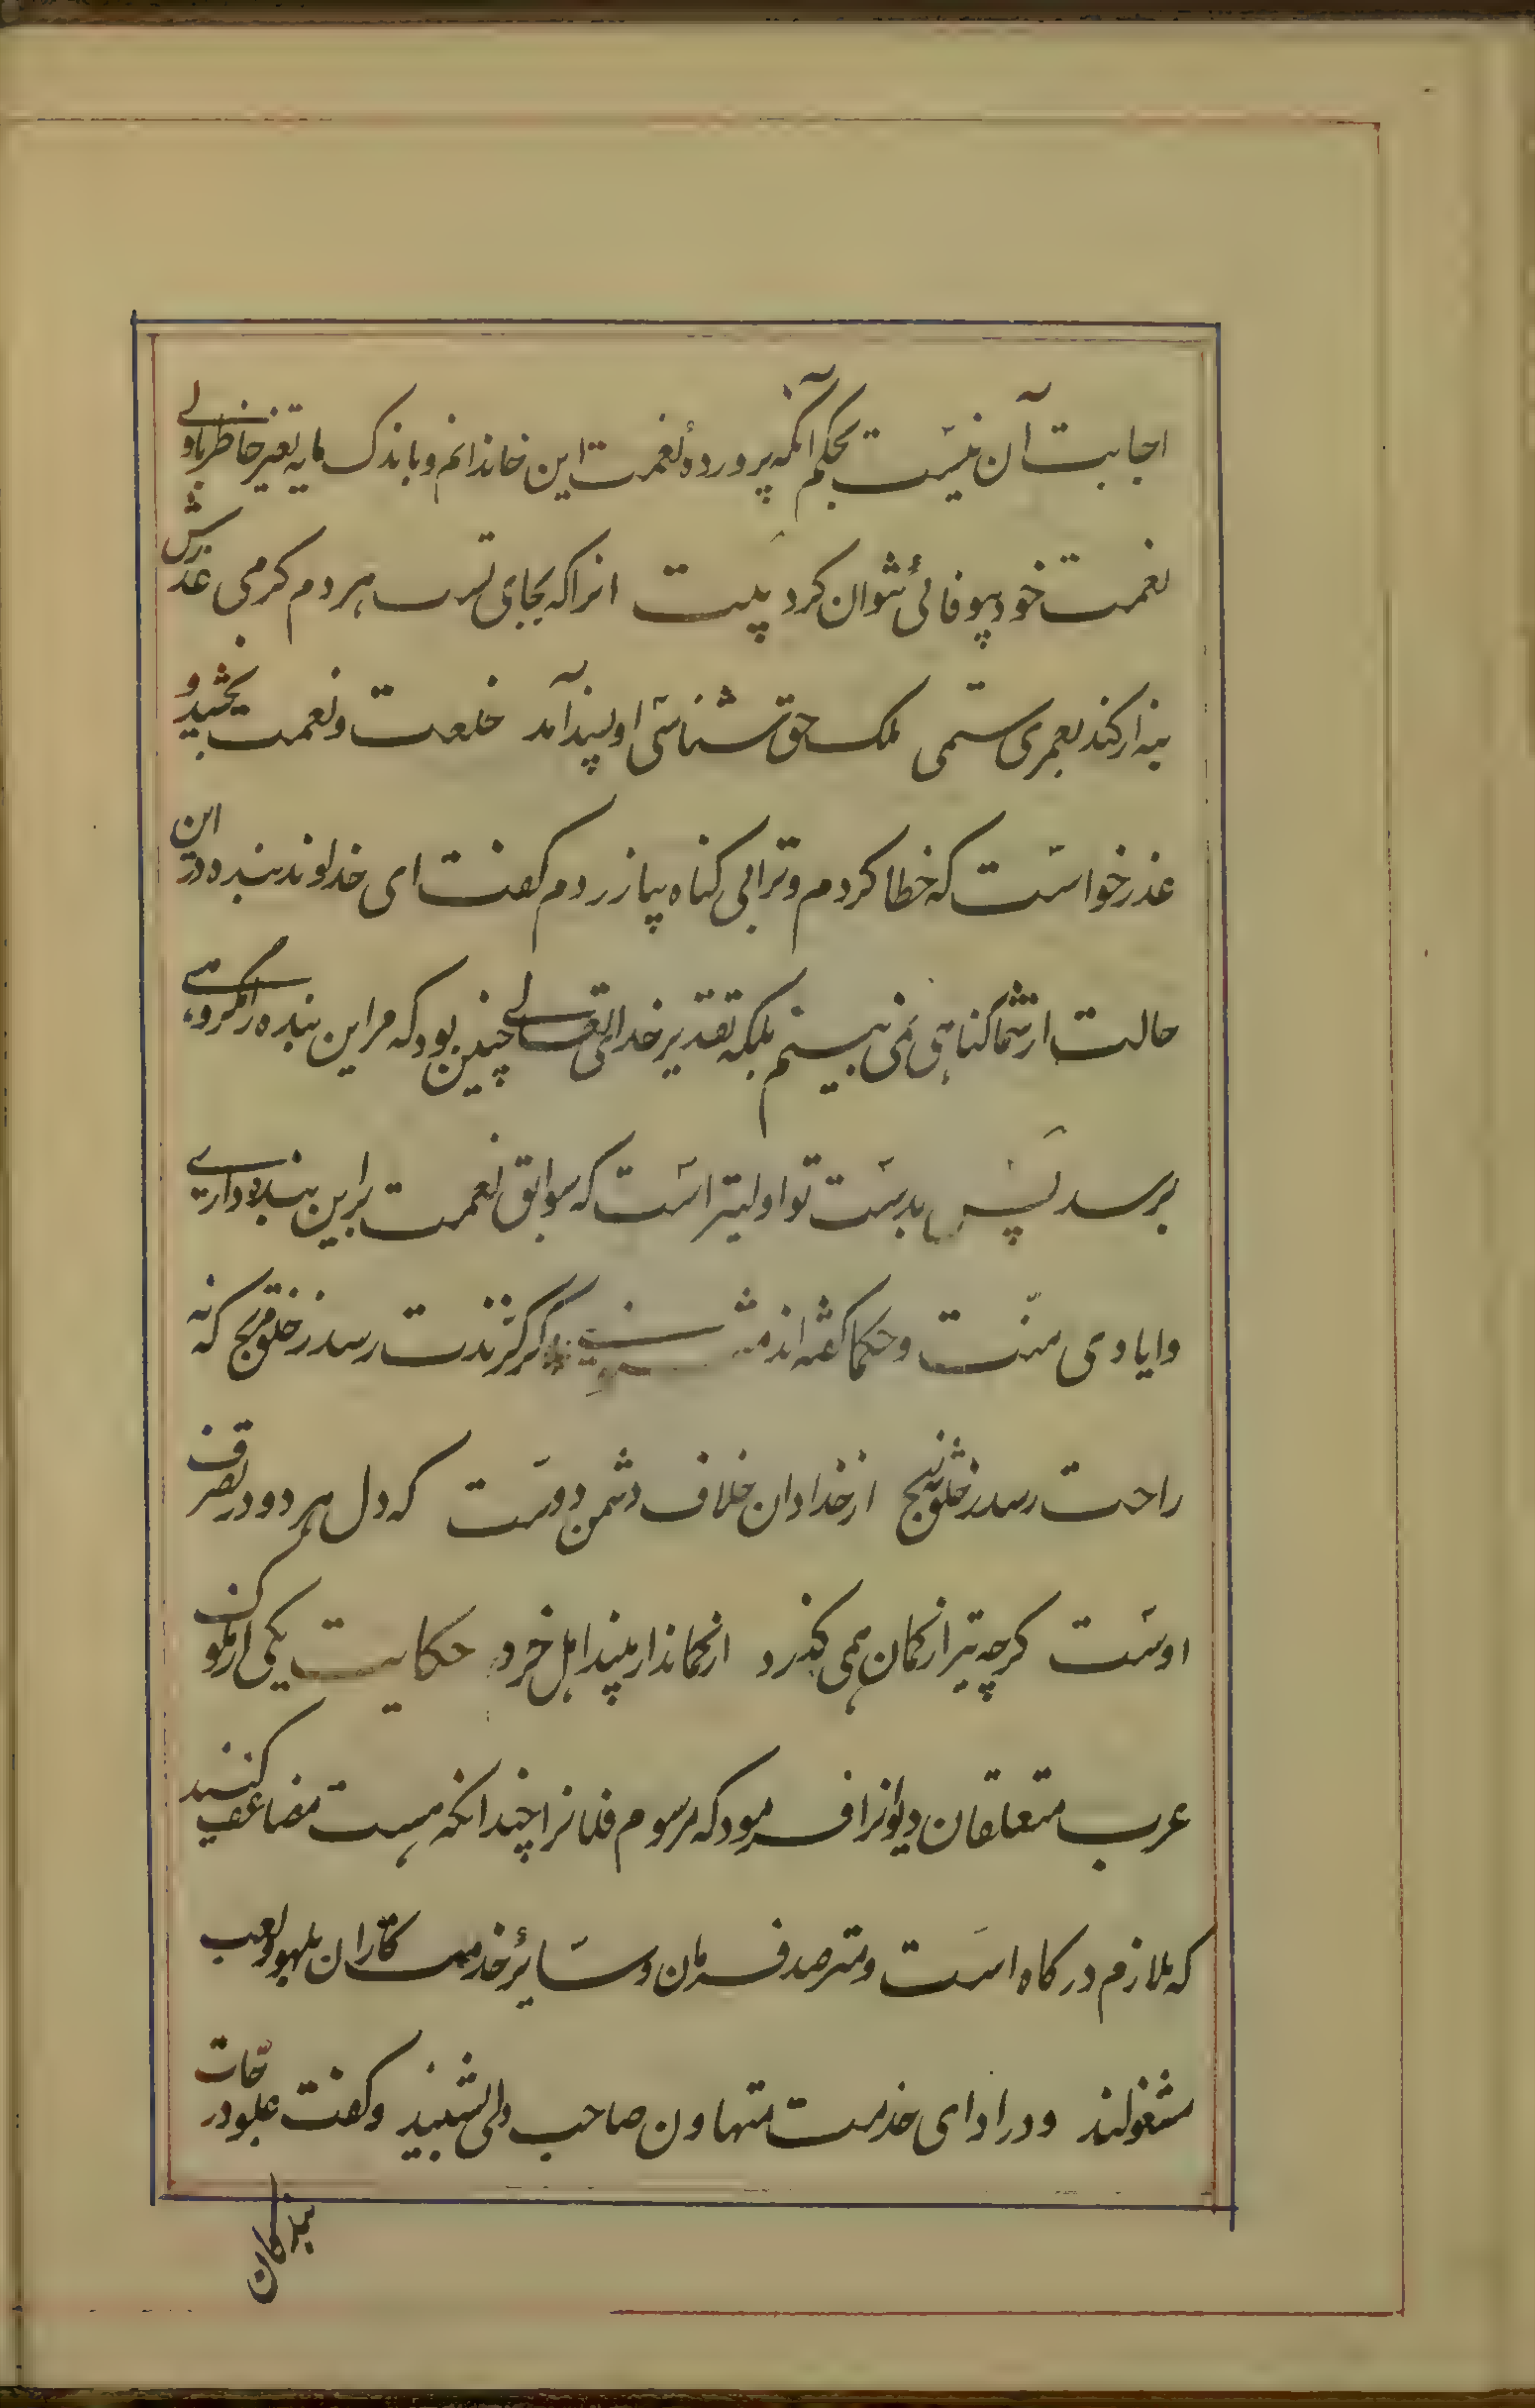 اجابت آن نیست بحکم آنکه پروردهٔ نعمت این خاندانم و باندک مایه تغیر خاطر باولی
نعمت خود بیوفائی نتوان کرد بیت انرا که بجای تست هر دم کرمی عذرش
بنه ار کند بعمری ستمی ملک حق شناسی او پسند آمد خلعت و نعمت بخشید و
عذر خواست که خطا کردم و ترا بی کناه بیازردم کفت ای خداوند بنده در این
حالت از شما کناهی نمی بینم بلکه تقدیر خدایتعالی چنین بود که مر این بنده را مکروهی
برسد پس بدست تو اولیتر است که سوابق نعمت بر این بنده داری
و ایادی منت و حکما کفته اند مثنوی کر کزندت رسد ز خلق مرنج که نه
راحت رسد ز خلق نه رنج از خدا دان خلاف دشمن و دوست که دل هر دو در تصرف
اوست کرچه تیر از کمان همی کذرد از کماندار بیند اهل خرد حکایت یکی از ملوک
عرب متعلقان دیوانرا فرمود که مرسوم فلانرا چندانکه هست مضاعف کنند
که ملازم درکاه است و مترصد فرمان و سائر خدمتکاران بلهو و لعب
مشغولند و در ادای خدمت متهاون صاحب دلی بشنید و کفت علو درجات
بندکان